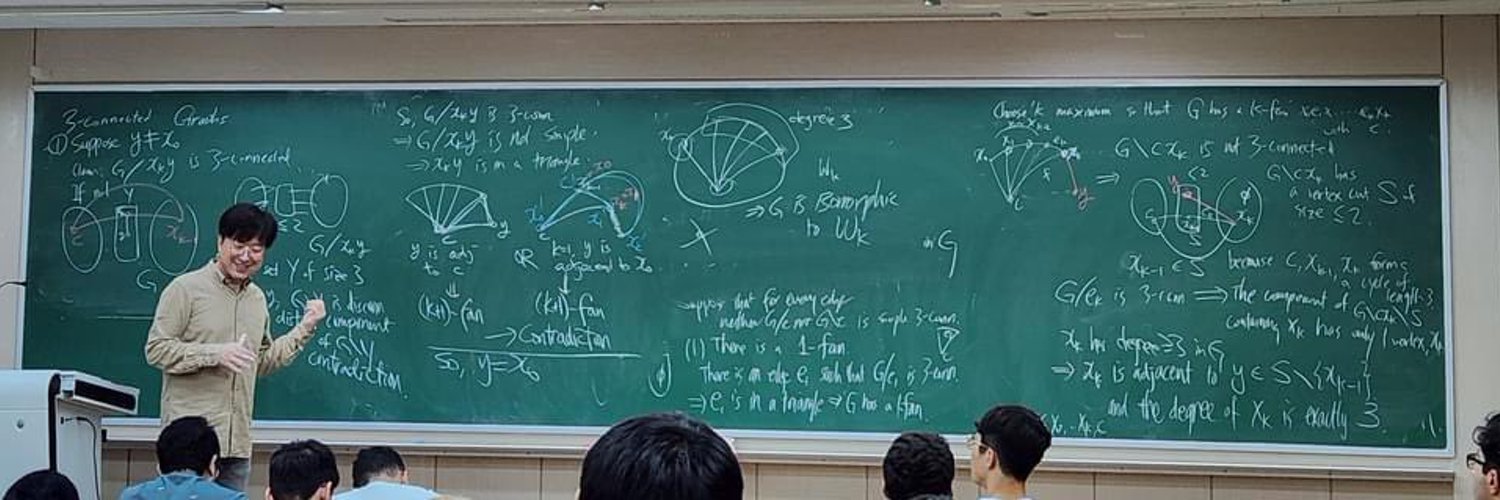 3-connected Graphs
① Suppose y≠x₀
Claim: G/xₖy is 3-connected
If not
G
≤2
G/xₖy
set Y of size 3
is disconn
component
of G\Y
contradiction
So, G/xₖy is 3-conn
⇒ G/xₖy is not simple.
⇒ xₖy is in a triangle.
c
y
y is adj
to c
⇓
(k+1)-fan
OR
k=1, y is
adjacent to x₀
(k+1)-fan
→ Contradiction
So, y=x₀
degree 3
Wₖ
⇒ G is isomorphic
to Wₖ
in G
suppose that for every edge
neither G/e nor G\e is simple 3-conn.
(1) There is a 1-fan
There is an edge e₁ such that G/e₁ is 3-conn.
⇒ e₁ is in a triangle ⇒ G has a 1-fan.
Choose k maximum so that G has a k-fan
with c.
G\cxₖ is not 3-connected
⇒
≤2
G\cxₖ has
a vertex cut S of
size ≤2.
xₖ₋₁ ∈ S because c, xₖ₋₁, xₖ forms
a cycle of
length 3
G/eₖ is 3-conn ⇒ The component of G\cxₖ\S
containing xₖ has only 1 vertex, xₖ
xₖ has degree ≥3 in G
⇒ xₖ is adjacent to y ∈ S\{xₖ₋₁}
and the degree of xₖ is exactly 3.